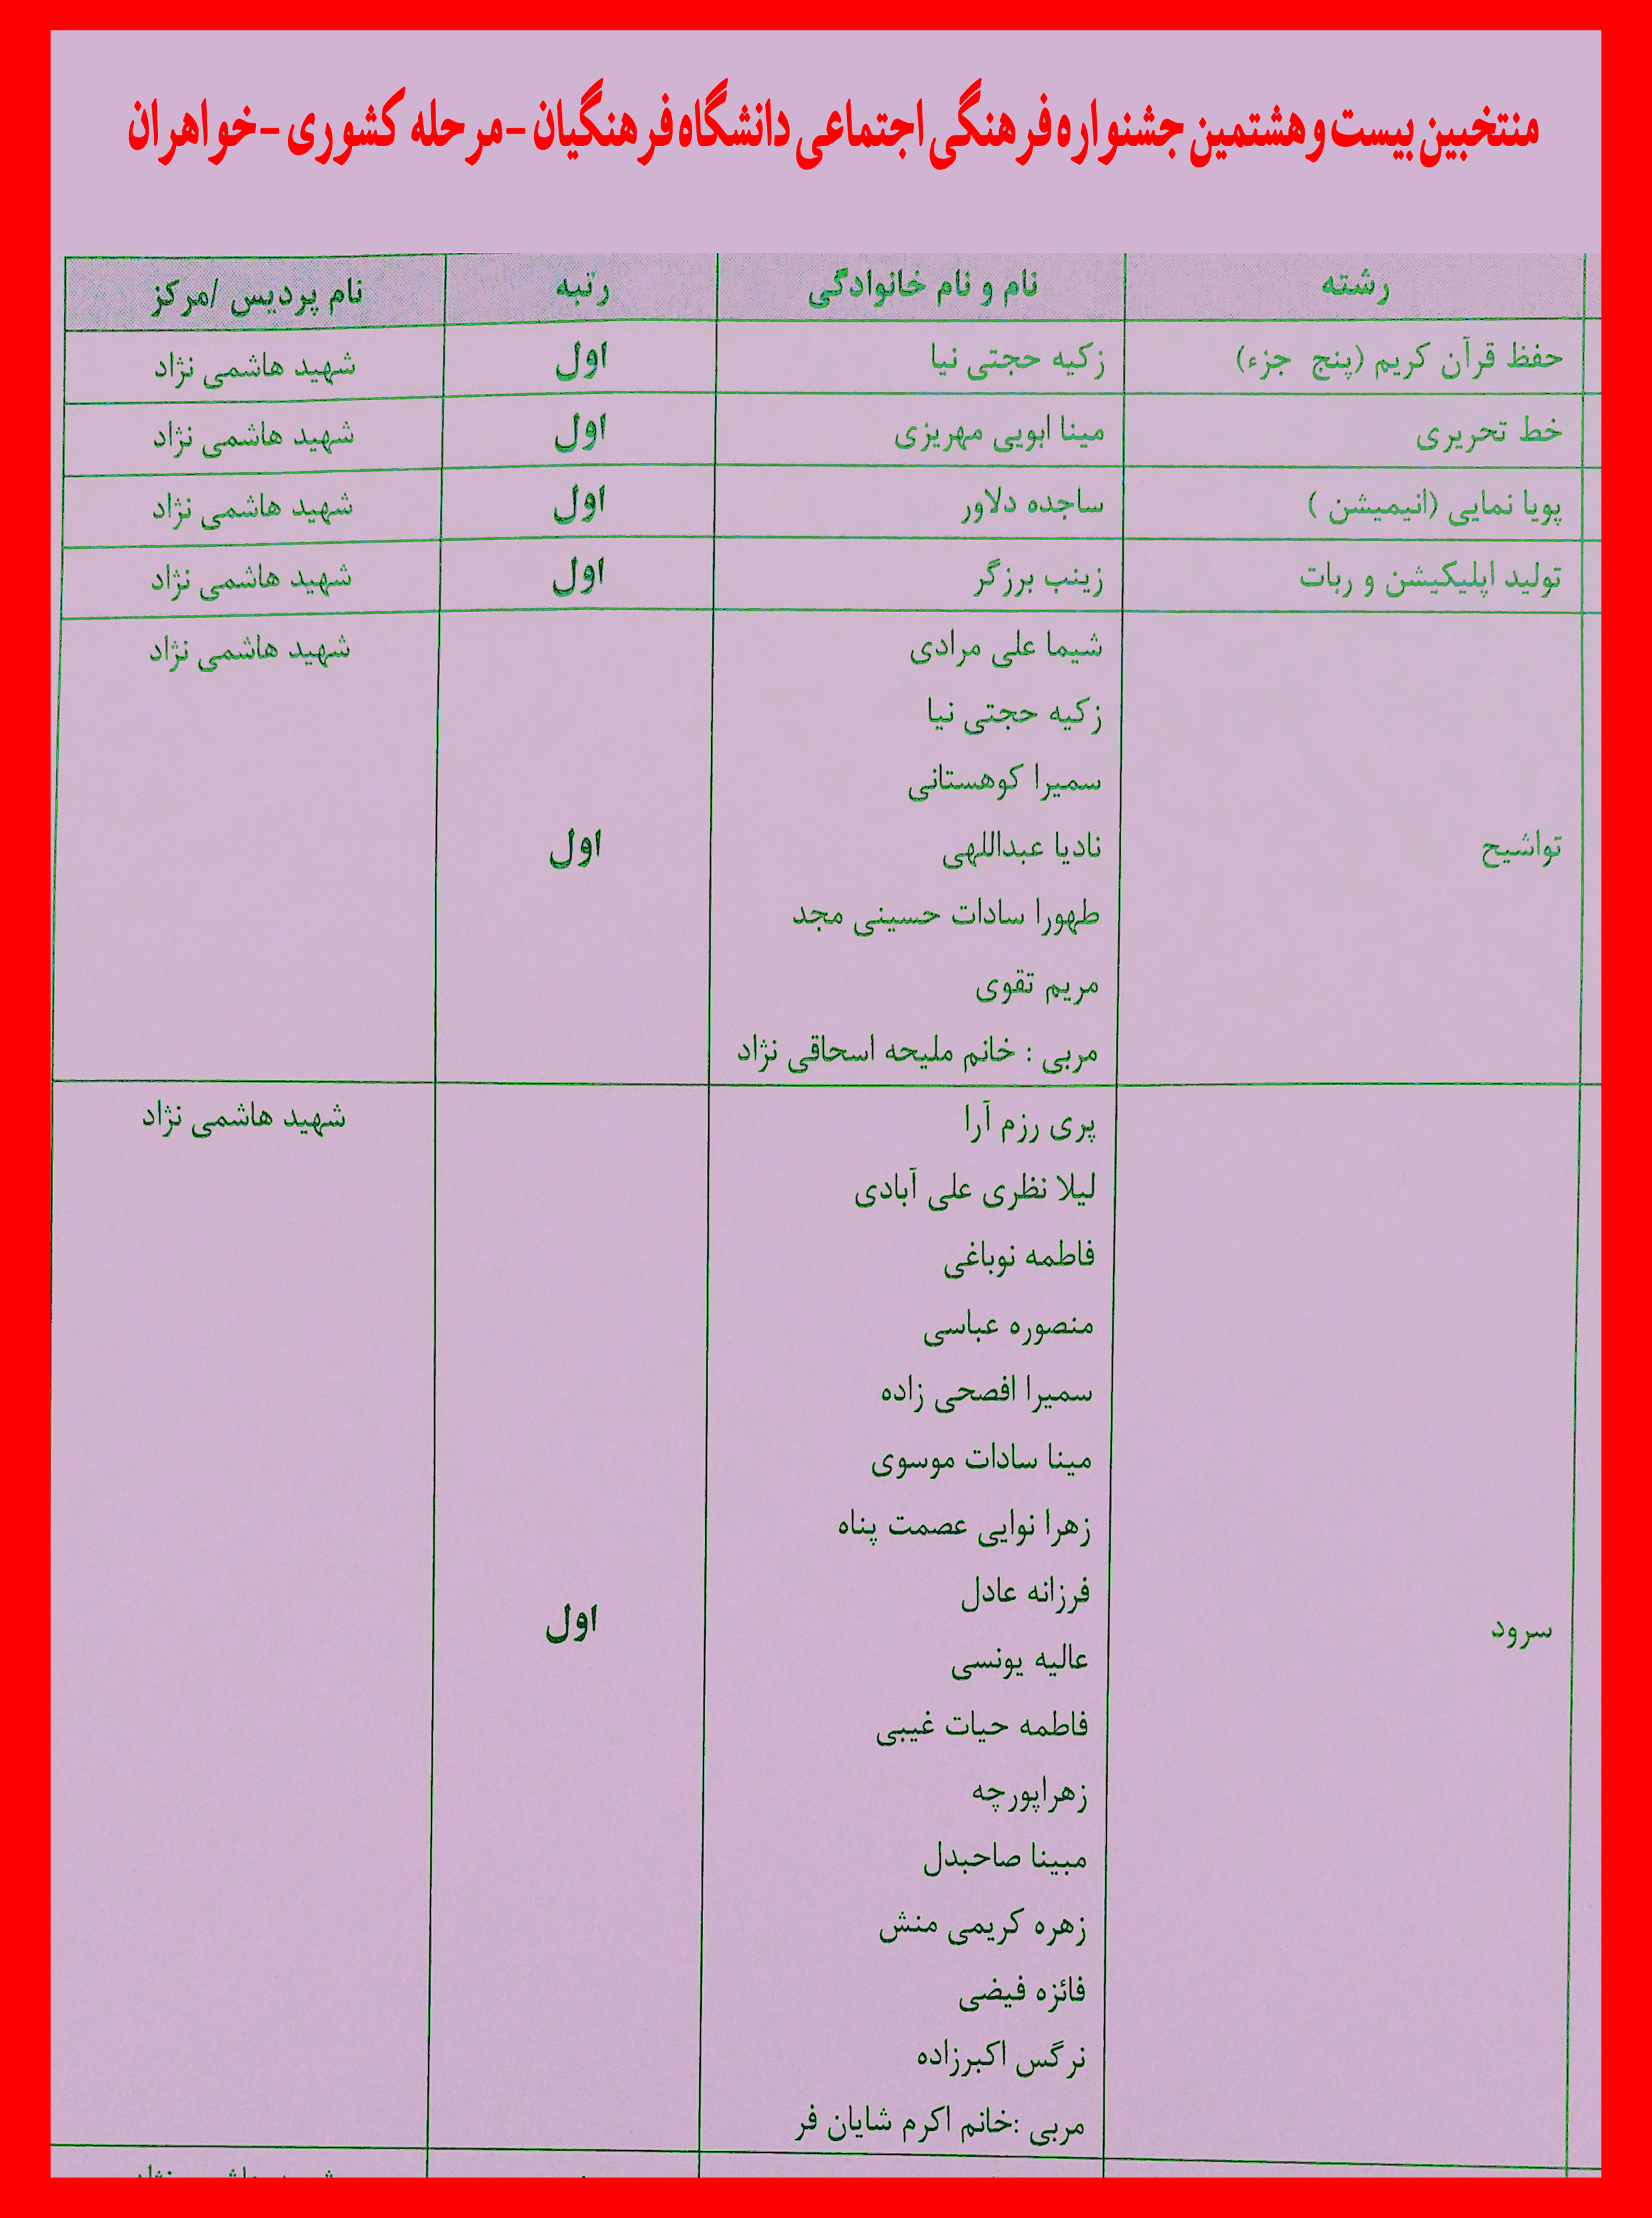 منتخبین بیست و هشتمین جشنواره فرهنگی اجتماعی دانشگاه فرهنگیان - مرحله کشوری - خواهران
رشته نام و نام خانوادگی رتبه نام پردیس /مرکز
حفظ قرآن کریم (پنج جزء) زکیه حجتی نیا اول شهید هاشمی نژاد
خط تحریری مینا ابویی مهریزی اول شهید هاشمی نژاد
پویا نمایی (انیمیشن ) ساجده دلاور اول شهید هاشمی نژاد
تولید اپلیکیشن و ربات زینب برزگر اول شهید هاشمی نژاد
شیما علی مرادی شهید هاشمی نژاد
زکیه حجتی نیا
سمیرا کوهستانی
تواشیح نادیا عبداللهی اول
طهورا سادات حسینی مجد
مریم تقوی
مربی : خانم ملیحه اسحاقی نژاد
پری رزم آرا شهید هاشمی نژاد
لیلا نظری علی آبادی
فاطمه نوباغی
منصوره عباسی
سمیرا افصحی زاده
مینا سادات موسوی
زهرا نوایی عصمت پناه
فرزانه عادل
سرود اول
عالیه یونسی
فاطمه حیات غیبی
زهراپورچه
مبینا صاحبدل
زهره کریمی منش
فائزه فیضی
نرگس اکبرزاده
مربی :خانم اکرم شایان فر